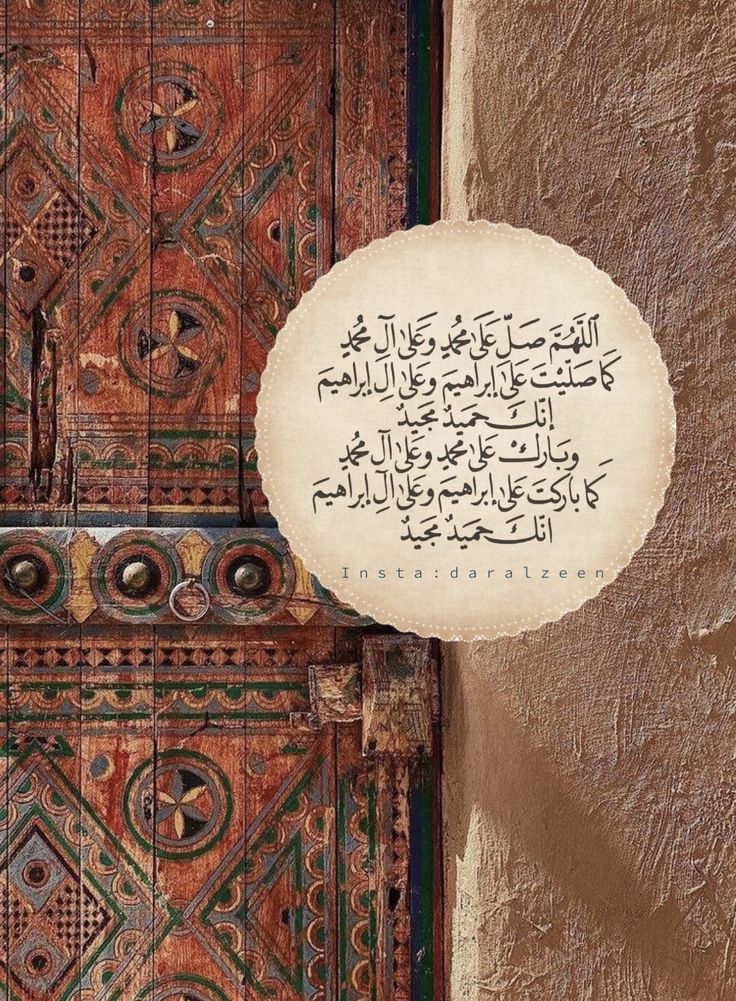 ٱللَّهُمَّ صَلِّ عَلَىٰ مُحَمَّدٍ وَعَلَىٰ آلِ مُحَمَّدٍ
كَمَا صَلَّيْتَ عَلَىٰ إبراهيمَ وعَلىٰ آلِ إبراهيمَ
إنّكَ حَميدٌ مَجيدٌ
وبَارِكْ عَلىٰ مُحَمَّدٍ وعَلىٰ آلِ مُحَمَّدٍ
كَما باركتَ عَلىٰ إبراهيمَ وعَلىٰ آلِ إبراهيمَ
انّكَ حَميَدٌ مَجَيدٌ
Insta:daralzeen